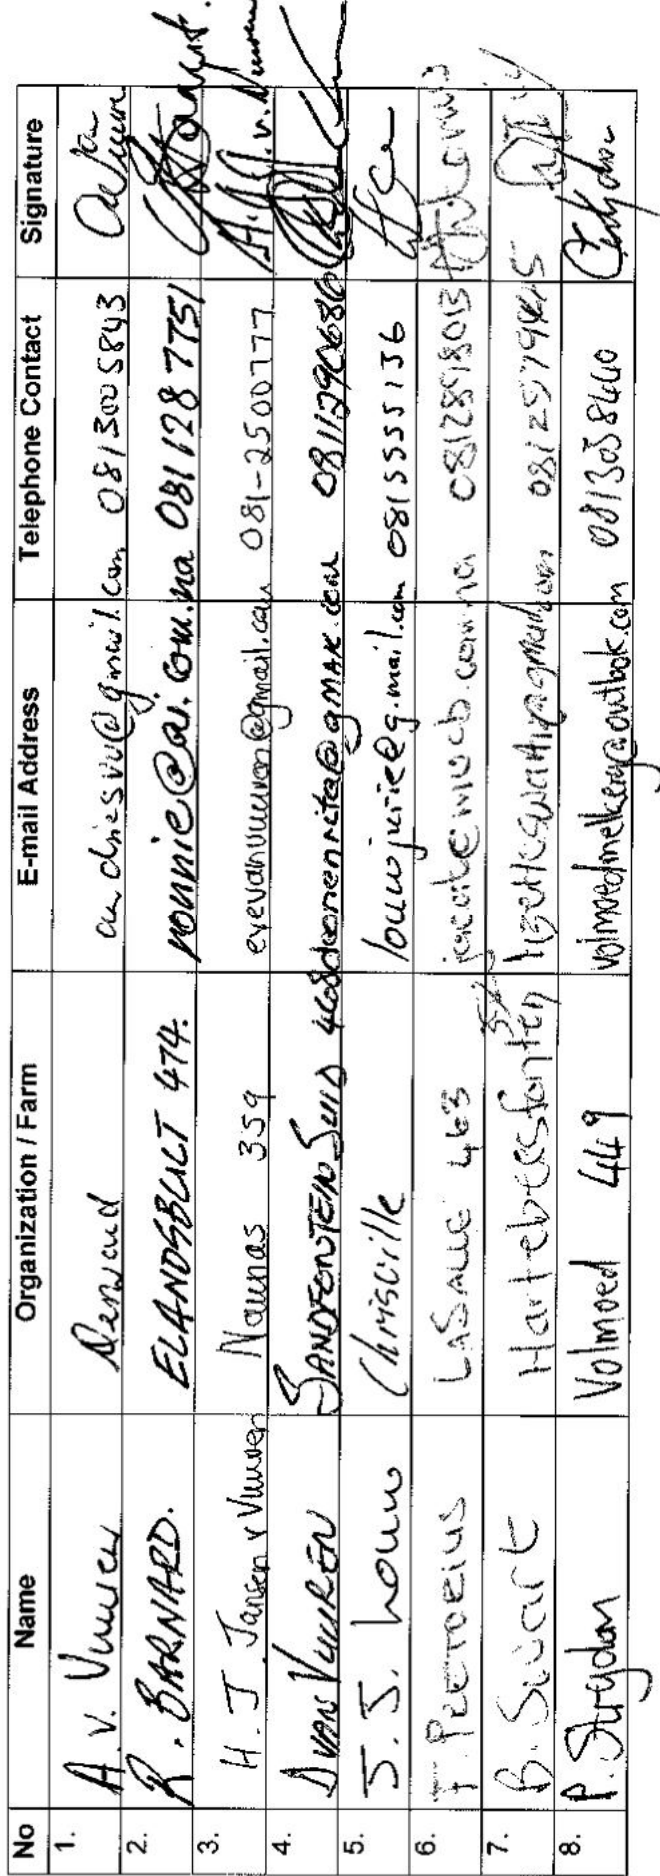 No Name Organization / Farm E-mail Address Telephone Contact Signature
1. A.V. Vuuren andriesvu@gmail.com 0813005843
2. R. BARNARD. ELANDSBULT 474. nonnie@ai.com.na 081 128 7751
3. H.J. Jansen v Vuuren Naunas 359 evevanvuuren@gmail.com 081-2500777
4. D VAN VUUREN SANDFONTEIN SUID 468 doorenrita@gmail.com 0811290686
5. J.J. Louw Chrisville louwjurie@g.mail.com 0815555136
6. F. PRETORIUS LASALLE 463 0812898013
7. B. Swart Hartebeesfontein
8. P. Strydom Volmoed 449 volmoedmelkery@outlook.com 0813038440